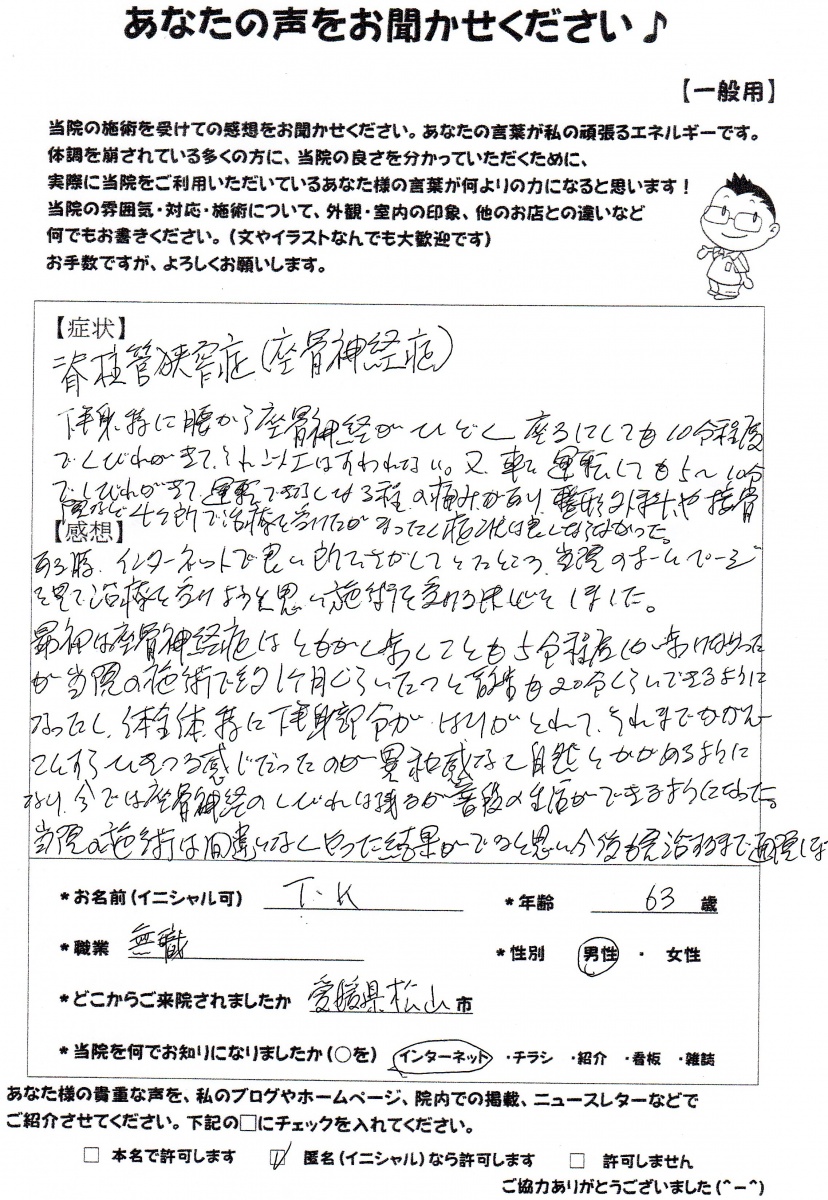 あなたの声をお聞かせください♪
【一般用】
当院の施術を受けての感想をお聞かせください。あなたの言葉が私の頑張るエネルギーです。
体調を崩されている多くの方に、当院の良さを分かっていただくために、
実際に当院をご利用いただいているあなた様の言葉が何よりの力になると思います！
当院の雰囲気・対応・施術について、外観・室内の印象、他のお店との違いなど
何でもお書きください。（文やイラストなんでも大歓迎です）
お手数ですが、よろしくお願いします。
【症状】
脊柱管狭窄症（座骨神経症）
下半身特に腰から座骨神経がひどく座るにしても10分程度
でしびれがきて、それ以上はすわれない。又、車を運転しても5～10分
でしびれがきて運転できなくなる程の痛みがあり、整形外科や接骨
院など4ヶ所で治療を受けたがまったく症状は良くならなかった。
【感想】
ある時、インターネットで良い所をさがしていたところ、当院のホームページ
を見て治療を受けようと思い施術を受ける決心をしました。
最初は座骨神経症はともかく歩くても5分程度しか歩けなかった
が当院の施術で約1ヶ月ぐらいたつと散歩も20分くらいできるように
なったし、体全体、特に下半身部分がはりがとれて、それまでかがん
でもひきつる感じだったのが異和感なく自然とかがめるように
なり、今では座骨神経のしびれは残るが普段の生活ができるようになった。
当院の施術は間違いなくやった結果がでると思い今後も完治するまで通院し
*お名前（イニシャル可） T・K *年齢 63 歳
*職業 無職 *性別 男性 ・ 女性
*どこからご来院されましたか 愛媛県松山市
*当院を何でお知りになりましたか（○を） インターネット ・チラシ ・紹介 ・看板 ・雑誌
あなた様の貴重な声を、私のブログやホームページ、院内での掲載、ニュースレターなどで
ご紹介させてください。下記の□にチェックを入れてください。
□ 本名で許可します ☑ 匿名（イニシャル）なら許可します □ 許可しません
ご協力ありがとうございました（^－^）